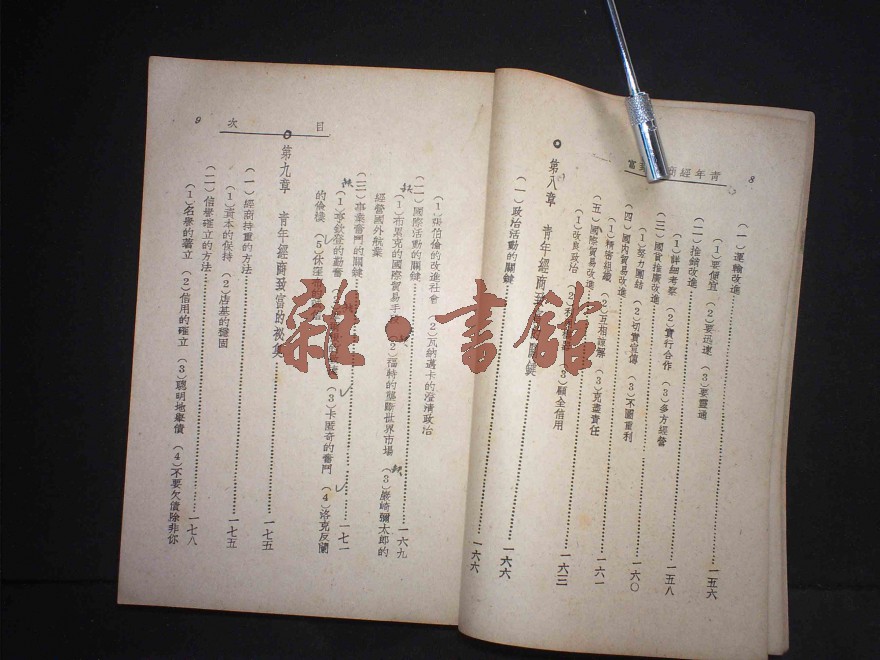 8
青年經商
富
(一)運輸改進……一五六
(1)要便宜 (2)要迅速 (3)要靈通
(二)推銷改進……一五八
(1)詳細考察 (2)實行合作 (3)多方經營
(三)國貨推廣改進……一六〇
(1)努力團結 (2)切實宣傳 (3)不圖重利
(四)國內貿易改進……一六一
(1)精密組織 (2)互相諒解 (3)克盡責任
(五)國際貿易改進……一六三
(1)改良政治 (3)顧全信用
第八章 青年經商致富 關鍵……一六六
(一)政治活動的關鍵……一六六
目 次
9
(1)倫的改進社會 (2)瓦納邁卡的澄清政治
(二)國際活動的關鍵……一六九
(1)布里克的國際貿易手 (2)福特的壟斷世界市場 (3)巖崎彌太郎的
經營國外航業
(三)事業奮鬥的關鍵……一七一
(1)李欽登的勤奮 (3)卡匿奇的奮鬥 (4)洛克反蘭
的儉樸 (5)休
第九章 青年經商致富的祕
……一七五
(一)經商持重的方法……一七五
(1)資本的保持 (2)店基的穩固
(二)信譽確立的方法……一七八
(1)名譽的著立 (2)信用的確立 (3)聰明地舉債 (4)不要欠債除非你
雜·書館